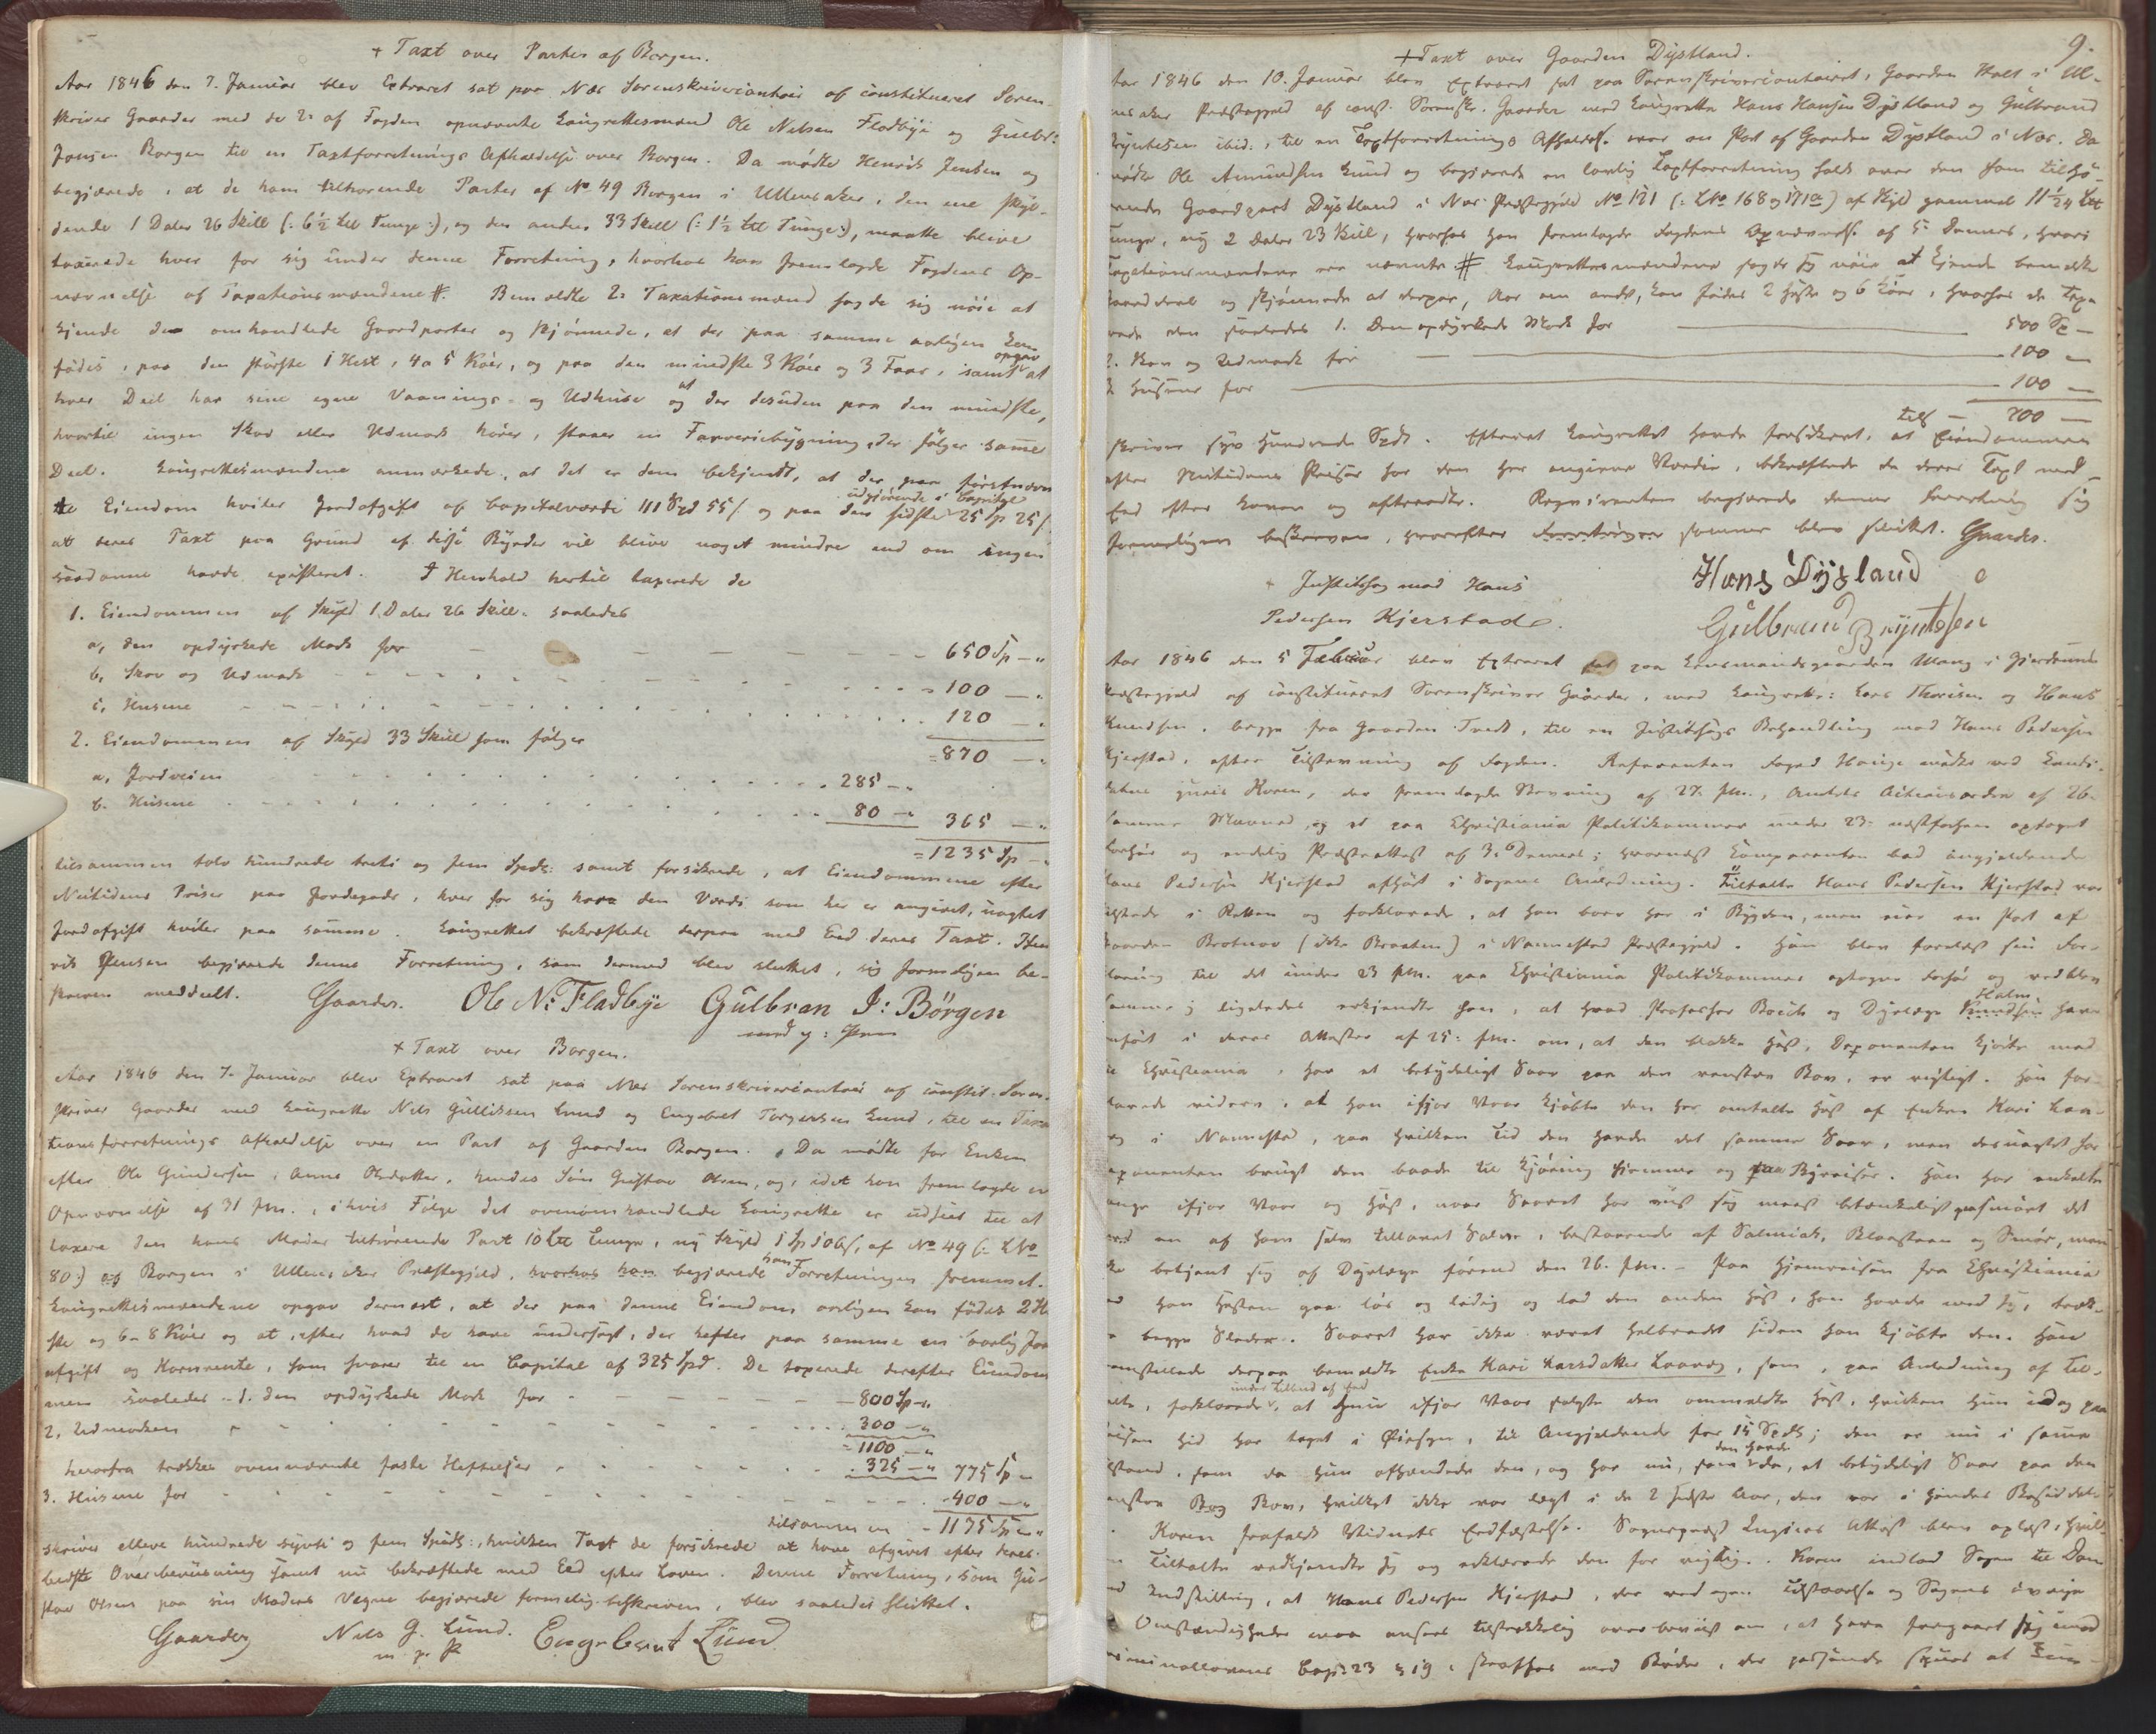 + Taxt over Parter af Borgen.
Aar 1846 den 7. Januar blev Extraret sat paa Næs Sorenskrivercontoir af constitueret Soren-
skriver Gaarder med de 2de af Fogden opnævnte Laugrettesmænd Ole Nilsen Fladbye og Gulbr:
Jensen Borgen til en Taxtforretnings Afholdelse over Borgen. Da mødte Henrik Jensen og
begjærede, at de ham tilhørende Parter af No 49 Borgen i Ullensaker, den ene skyl-
dende 1 Daler 26 Skill (: 6½ Lll Tunge :), og den anden 33 Skill (: 1½ Lll Tunge :), maatte blive
taxerede hver for sig under denne Forretning, hvorhos han fremlagde Fogdens Op-
nævnelse af Taxationsmændene #. Bemeldte 2de Taxationsmænd sagde sig nøie at
kjende de omhandlede Gaardparter og skjønnede, at der paa samme aarligen kan
fødes, paa den største 1 Hest, 4 a 5 Køer, og paa den mindste 3 Køer og 3 Faar, samt opgav at
hver Deel har sine egne Vaanings- og Udhuse og at der desuden paa den mindste,
hvortil ingen Skov eller Udmark hører, staaer en Farveriebygning, der følger samme
Deel. Laugrettesmændene anmærkede, at det er dem bekjendt, at der paa førstnævn
te Eiendom hviler Jordafgift af Capitalværdi 111 Spd 55 s og paa den sidste udgjørende i Capital 25 Sp 25 s
at deres Taxt paa Grund af disse Byrder vil blive noget mindre end om ingen
saadanne havde existeret. I Henhold hertil taxerede de
1. Eiendommen af Skyld 1 Daler 26 Skill. saaledes
a, den opdyrkede Mark for - 650 Sp - "
b, Skov og Udmark - 100 - "
c, Husene - 120 - "
= 870 - "
2. Eiendommen af Skyld 33 Skill som følger
a, Jordveien - 285 - "
b. Husene - 80 - " 365 - "
= 1235 Sp - "
tilsammen tolv hundrede treti og fem Spdlr. samt forsikrede, at Eiendommene efter
Nutidens Priser paa Jordegods, hver for sig have den Værdi som her er angivet, uagtet
Jordafgift hviler paa samme. Laugrettet bekræftede derpaa med Eed deres Taxt. Hen
rik Jensen begjærede denne Forretning, som dermed blev sluttet, sig formeligen be-
skreven meddeelt. Gaarder. Ole Ns Fladbye Gulbran J: Börgen
med p: Pen
+ Taxt over Borgen.
Aar 1846 den 7. Januar blev Extraret sat paa Næs Sorenskrivercontoir af constit. Soren-
skriver Gaarder med Laugrette Nils Gulliksen Lund og Engebret Torgersen Lund, til en Taxa
tionsforretnings Afholdelse over en Part af Gaarden Borgen. Da mødte for Enken
efter Ole Gundersen, Anne Olsdatter, hendes Søn Gustav Olsen, og, idet han fremlagde en
Opnævnelse af 31 f.M., i hvis Følge det ovenomhandlede Laugrette er udseet til at
taxere den hans Moder tilhørende Part 10 Lll Tunge, ny Skyld 1 Sp 106 s, af No 49 (: L No
80 :) af Borgen i Ullensaker Præstegjeld, hvorhos han begjærede han Forretningen fremmet.
Laugrettesmændene opgav dernæst, at der paa denne Eiendom aarligen kan fødes 2 He
ste og 6 a 8 Køer og at, efter hvad de have undersøgt, der hefter paa samme en aarlig Jord
afgift og Kornrente, som svarer til en Capital af 325 Spd. De taxerede derefter Eiendom
men saaledes 1. den opdyrkede Mark for - 800 Sp - "
2. Udmarken - 300 - "
= 1100 - "
hvorfra trækkes ovennævnte faste Heftelser - 325 - " 775 Sp -
3. Husene for - 400 - "
tilsammen - 1175 Sp - "
skriver elleve hundrede sytti og fem Spdlr., hvilken Taxt de forsikrede at have afgivet efter deres
bedste Overbeviisning samt nu bekræftede med Eed efter Loven. Denne Forretning, som Gu-
stav Olsen paa sin Moders Vegne begjærede formelig beskreven, blev saaledes sluttet.
Gaarder Nils G. Lund. Engebret Lund
m. p. P
9.
+ Taxt over Gaarden Dystland.
Aar 1846 den 10. Januar blev Extraret sat paa Sorenskrivercontoiret, Gaarden Holt i Ul-
ensaker Præstegjeld af const. Sorenskr. Gaarder med Laugrette Hans Hansen Dystland og Gulbrand
Bryntesen ibid., til en Taxtforretnings Afholdelse over en Part af Gaarden Dystland i Næs. Da
mødte Ole Amundsen Lund og begjærede en lovlig Taxtforretning holdt over den ham tilhø-
rende Gaardpart Dystland i Næs Præstegjeld No 121 (: L No 168 og 171a) af Skyld gammel 11 ½4 Lll
Tunge, ny 2 Daler 23 Skill, hvorhos han fremlagde Fogdens Opnævnelse af 5 Dennes, hvori
Taxationsmændene ere nævnte #. Laugrettesmændene sagde sig nøie at kjende bemeldte
Gaarddeel og skjønnede at derpaa, Aar om andet, kan fødes 2 Heste og 6 Køer, hvorhos de taxe
rede den saaledes 1. Den opdyrkede Mark for - 500 Sp -
2. Skov og Udmark for - 100 -
3. Husene for - 100 -
tils - 700 -
skriver syv hundrede Spdlr. Efterat Laugrettet havde forsikret, at Eiendommen
efter Nutidens Priser har den her angivne Værdie, bekræftede de deres Taxt med
Eed efter Loven og aftraadte. Requirenten begjærede denne Forretning sig
formeligen beskreven, hvorefter Forretningen samme blev sluttet. Gaarder.
Hans Dysland
Gulbrand Bryntesen
+ Justitssag mod Hans
Pedersen Kjerstad.
Aar 1846 den 5 Februar blev Extraret sat paa Lensmandsgaarden Mang i Gjerdrums
Præstegjeld af constitueret Sorenskriver Gaarder, med Laugrette: Lars Thoresen og Hans
Knudsen, begge fra Gaarden Tveit, til en Justitssags Behandling mod Hans Pedersen
Kjerstad, efter Tilstevning af Fogden. Referenten Foged Hauge mødte ved Candi-
datus juris Koren, der fremlagde Stevning af 27. f.M., Amtets Actionsordre af 26.
samme Maaned, og et paa Christiania Politikammer under 23. næstforhen optaget
Forhør og endelig Præsteattest af 3. Dennes; hvornæst Comparenten bad angjældende
Hans Pedersen Kjerstad afhørt i Sagens Anledning. Tiltalte Hans Pedersen Kjerstad var
tilstede i Retten og forklarede, at han boer her i Bygden, men eier en Part af
Gaarden Brotnov (ikke Braaten) i Nannestad Præstegjeld. Han blev forelæst sin For-
klaring til det under 23 f.M. paa Christiania Politikammer optagne Forhør og vedblev
samme; ligeledes erkjendte han, at hvad Professor Boeck og Dyrlæge Knudsen Holm have
anført i deres Attester af 25. f.M. om, at den blakke Hest, Deponenten kjørte med
til Christiania, har et betydeligt Saar paa den venstre Bov, er rigtigt. Han for-
klarede videre, at han ifjor Vaar kjøbte den her omtalte Hest af Enken Kari Laa-
vog i Nannestad, paa hvilken Tid den havde det samme Saar, men desuagtet har
Deponenten brugt den baade til Kjøring hjemme og paa Byreiser. Han har enkelte
Gange ifjor Vaar og Høst, naar Saaret har viist sig meest betænkeligt paasmurt det
med en af ham selv tillavet Salve, bestaaende af Salmiak, Blaasteen og Smør, men
ikke betjent sig af Dyrlæge førend den 26. f.M. - Paa Hjemreisen fra Christiania
lod han Hesten gaae løs og ledig og lod den anden Hest, han havde med sig, træk-
ke begge Slæder. Saaret har ikke været helbredet siden han kjøbte den. Han
fremstillede derpaa bemeldte Enke Kari Larsdatter Laavog, som, paa Anledning af Til-
talte, forklarede under Tilbud af Eed, at hun ifjor Vaar solgte den ommeldte Hest, hvilken hun idag paa
Reisen hid har taget i Øiesyn, til Angjældende for 15 Spdlr; den er nu i samme
Tilstand, som da hun afhændede den, og har nu, som den havde da, et betydeligt Saar paa den
venstre Bog Bov, hvilket ikke var lægt i de 2 sidste Aar, den var i hendes Besiddelse
. Koren frafaldt Vidnets Eedfæstelse. Sogneprest Lugiers Attest blev oplæst, hvil-
ken Tiltalte vedkjendte sig og erklærede den for rigtig. Koren indlod Sagen til Dom
med Indstilling, at Hans Pedersen Kjerstad, der ved egen Tilstaaelse og Sagens øvrige
Omstændigheder maa ansees tilstrækkelig overbeviist om, at have forgaaet sig imod
Criminallovens Cap: 23 § 19, straffes med Bøder, der passende synes at kun-